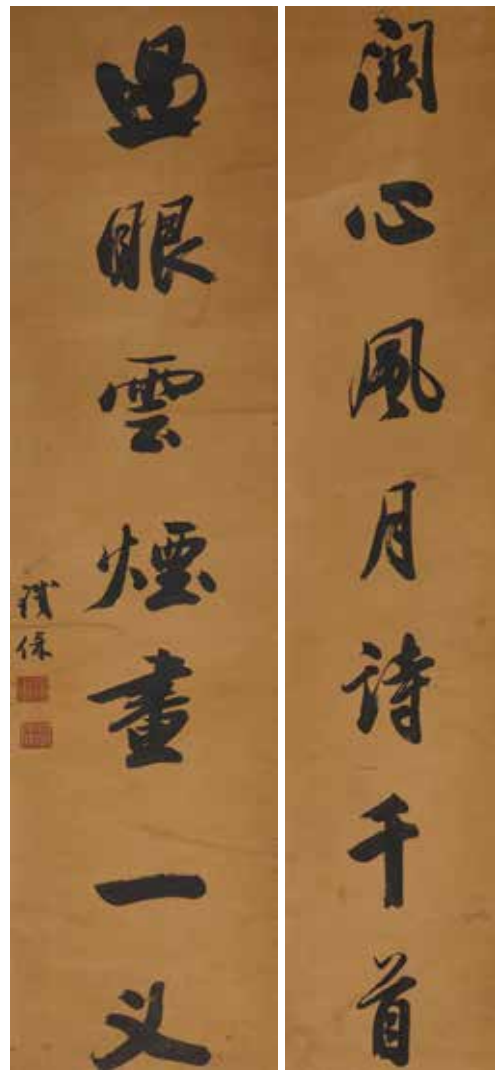 關心風月詩千首
過眼雲煙畫一叉
鐵保